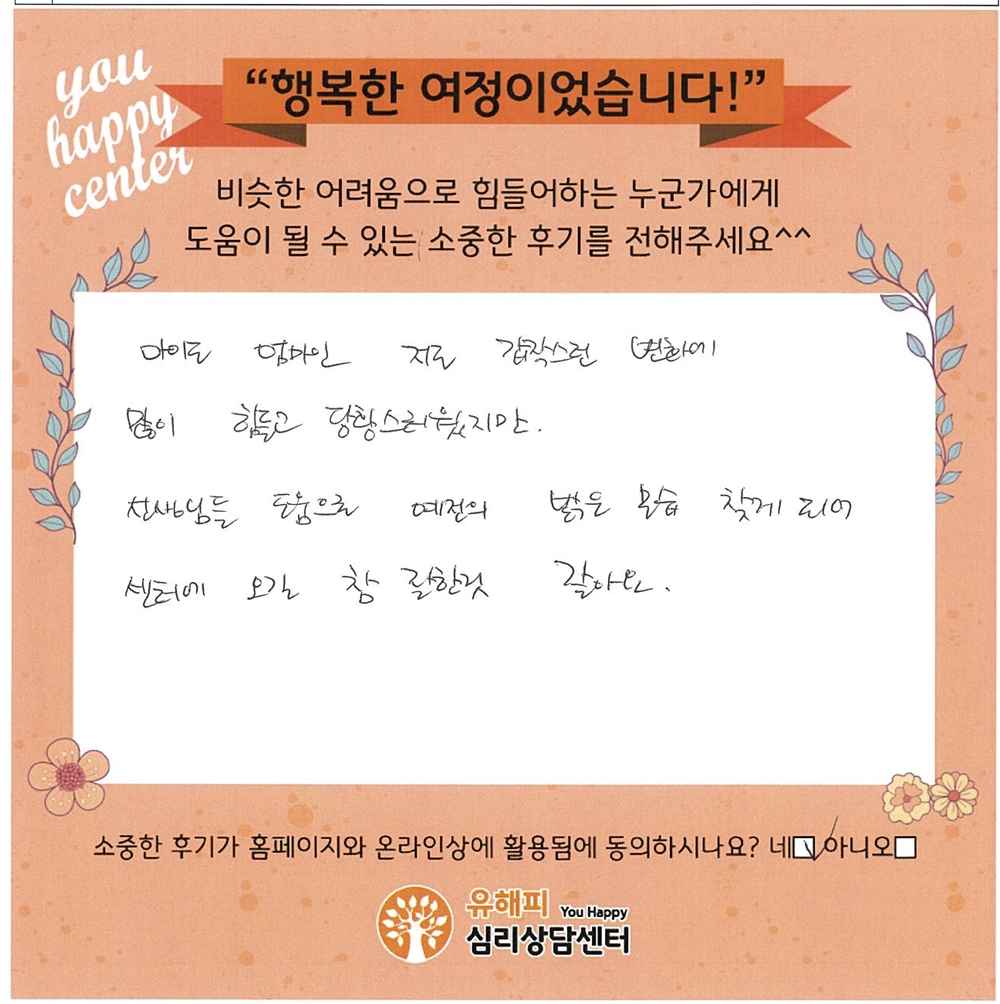 you
happy
center
“행복한 여정이었습니다!”
비슷한 어려움으로 힘들어하는 누군가에게
도움이 될 수 있는 소중한 후기를 전해주세요^^
아이도 엄마인 저도 갑작스런 변화에
많이 힘들고 당황스러웠지만.
선생님들 도움으로 예전의 밝은 모습 찾게 되어
센터에 오길 참 잘한것 같아요.
소중한 후기가 홈페이지와 온라인상에 활용됨에 동의하시나요? 네☑ 아니오☐
유해피 You Happy
심리상담센터